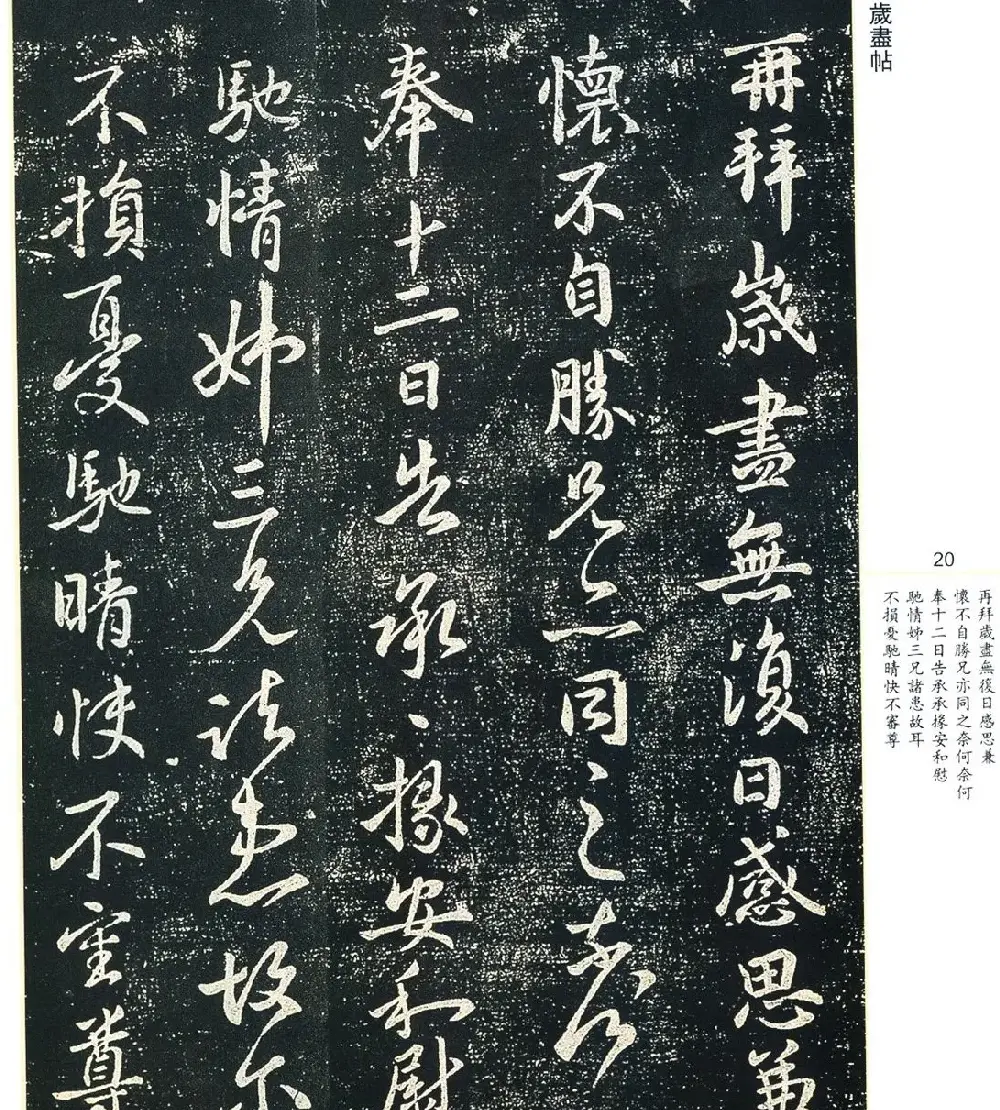 歲盡帖
再拜歲盡無復日感思兼
懷不自勝兄亦同之奈何
奉十二日告承、掾安和慰
馳情姊三兄諸患故尔
不損憂馳晴快不審尊
20
再拜歲盡無後日感思兼
懷不自勝兄亦同之奈何奈何
奉十二日告承承掾安和慰
馳情姊三兄諸患故耳
不損憂馳晴快不審尊